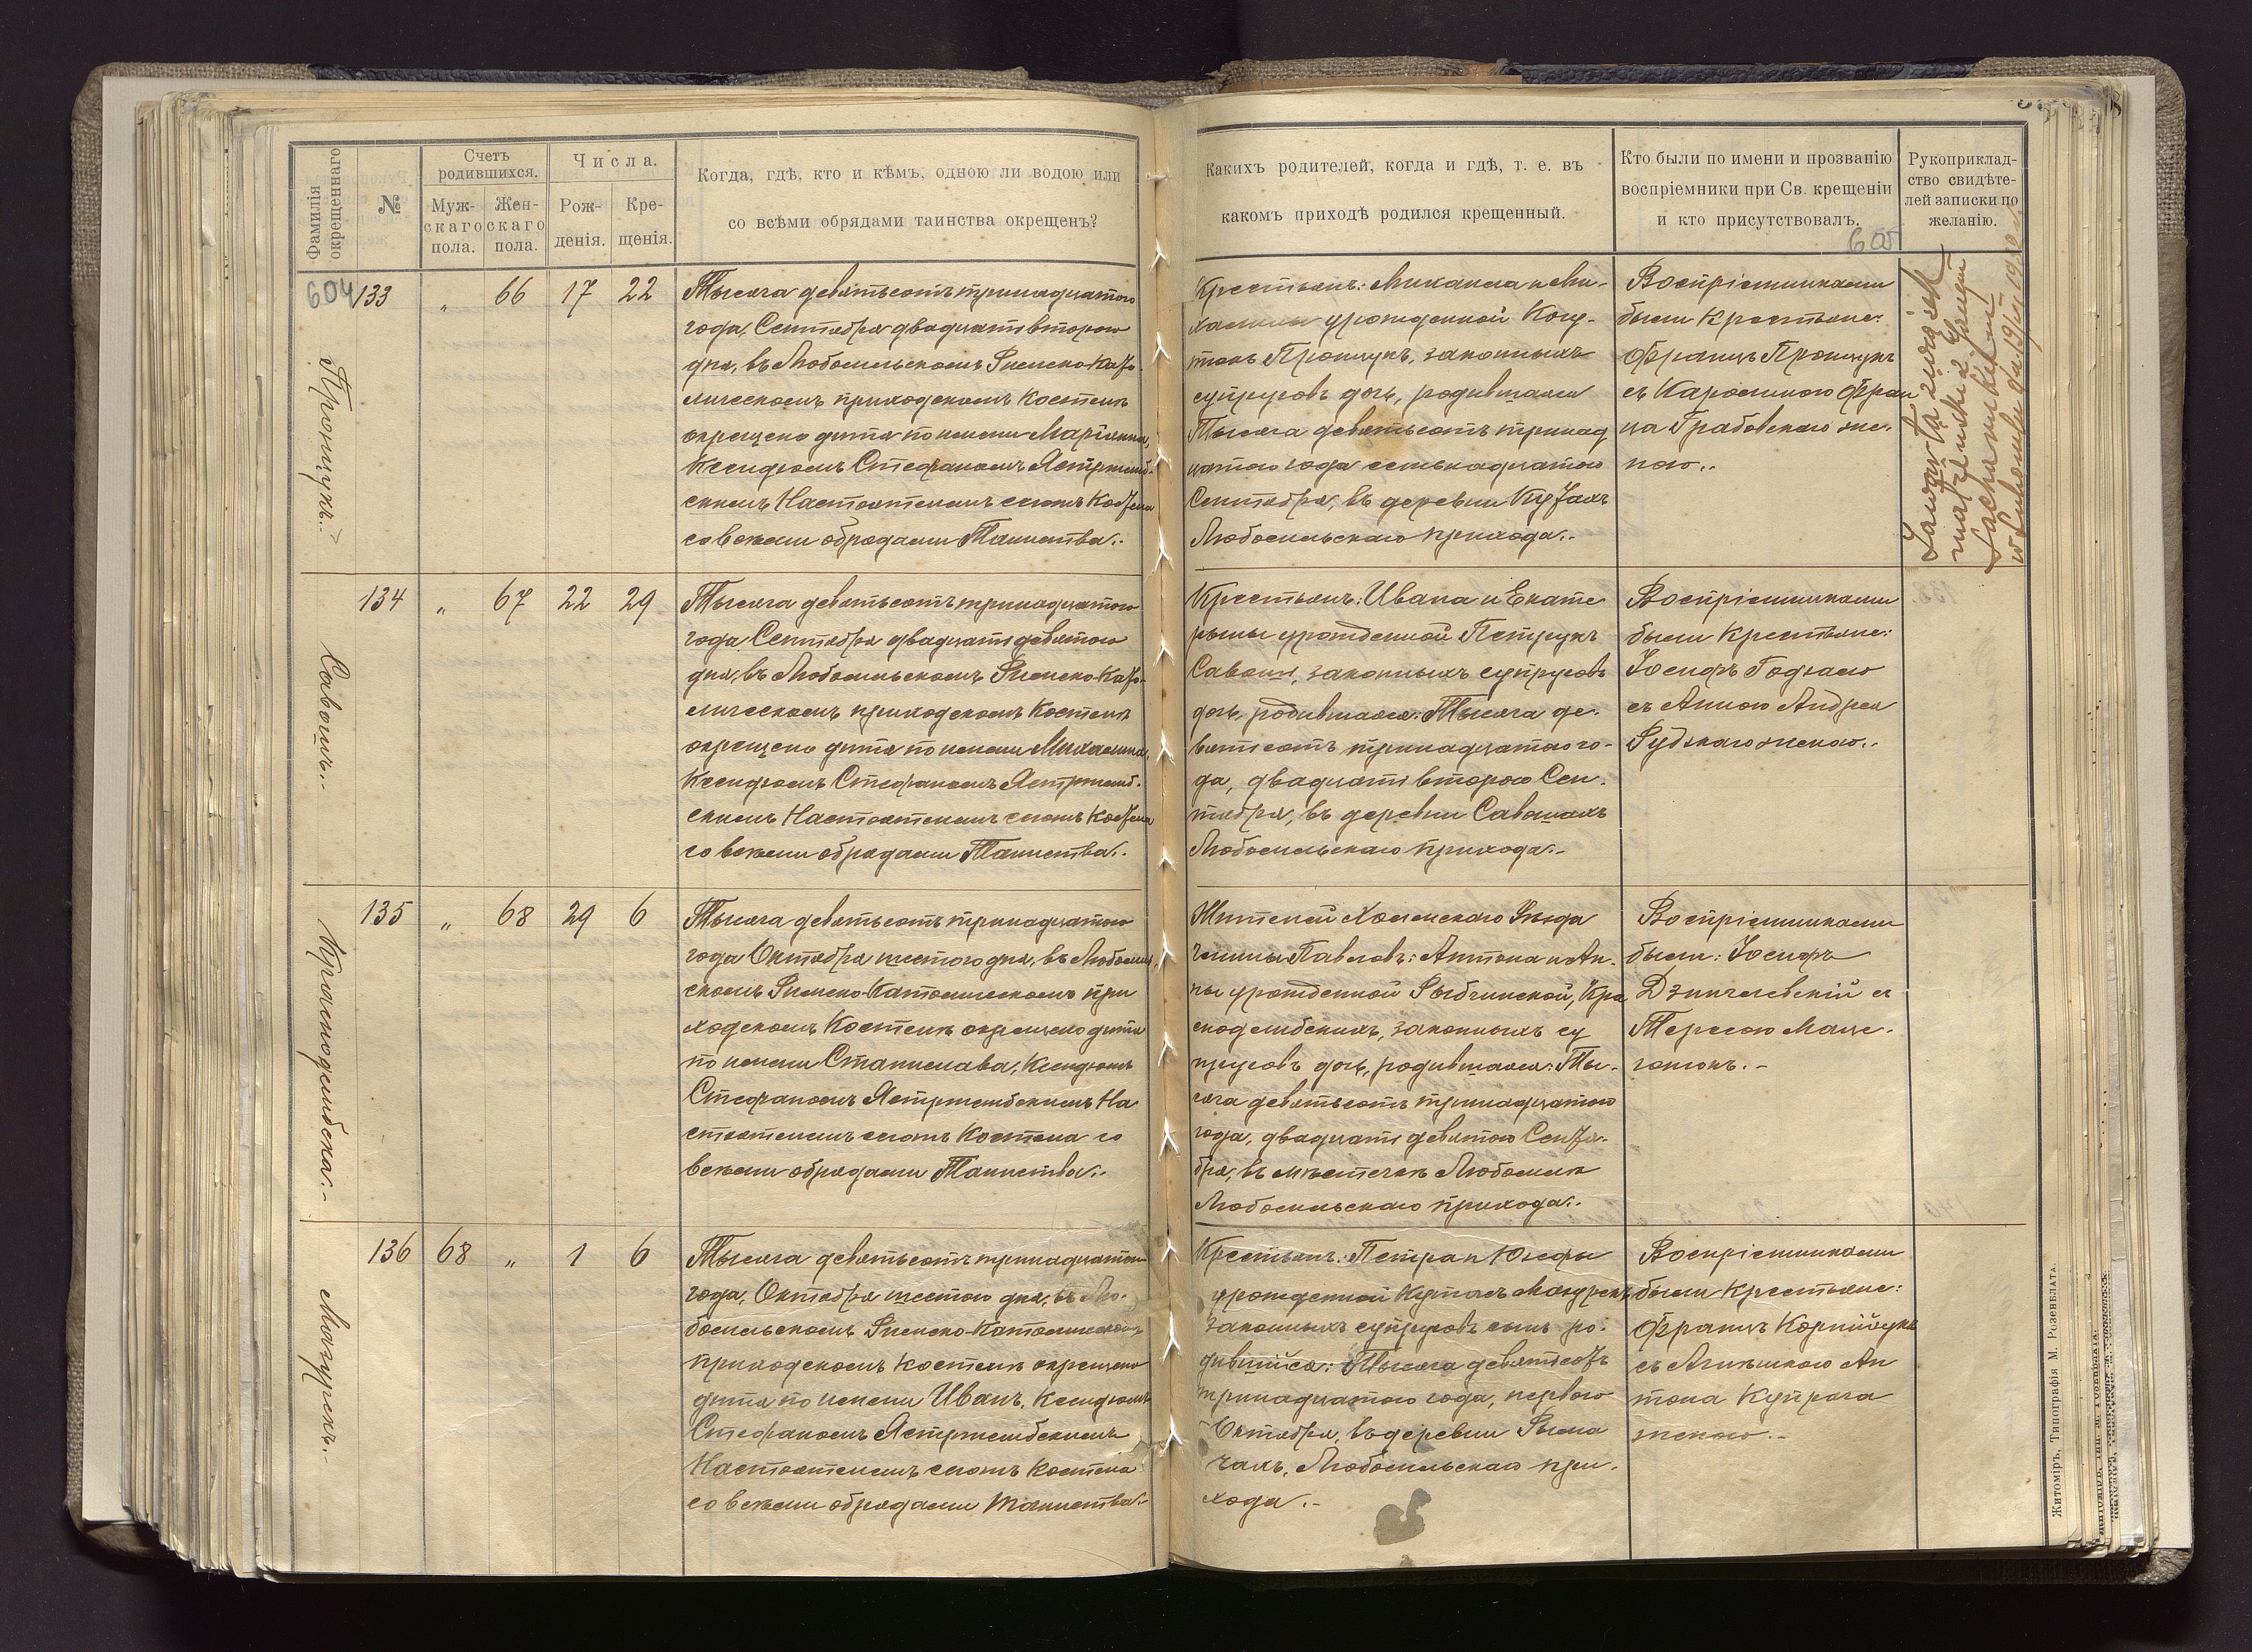 Фамилія окрещеннаго
№
Счетъ родившихся.
Муж-
скаго
пола.
Жен-
скаго
пола.
Числа.
Рож-
денія.
Кре-
щенія.
Когда, гдѣ, кто и кѣмъ, одною ли водою или
со всѣми обрядами таинства окрещенъ?
Какихъ родителей, когда и гдѣ, т. е. въ
какомъ приходѣ родился крещенный.
Кто были по имени и прозванію
воспріемники при Св. крещеніи
и кто присутствовалъ.
Рукоприклад-
ство свидѣте-
лей записки по
желанію.
604
605
133 „ 66 17 22
Пронщукъ.
Тысяча девятьсотъ тринадцатого
года Сентября двадцать второго
дня, въ Любомльскомъ Римско-Каѳо-
лическомъ приходскомъ Костелѣ
окрещено дитя по имени Маріанна,
Ксендзомъ Стефаномъ Ястржемб-
скимъ Настоятелемъ сего Костела
со всѣми обрядами Таинства.
Крестьянъ: Михаила и Ми-
халины урожденной
Пронщукъ, законныхъ
супруговъ дочь, родившаяся
Тысяча девятьсотъ тринад
цатого года семнадцатого
Сентября, въ деревни
Любомльскаго прихода.
Воспріемниками
были Крестьяне:
Францъ Пронщукъ
съ Каролиною Фран
ца Грабовскаго же-
ною.
134 „ 67 22 29
Савошъ.
Тысяча девятьсотъ тринадцатого
года Сентября двадцать девятого
дня, въ Любомльскомъ Римско-Каѳо-
лическомъ приходскомъ Костелѣ
окрещено дитя по имени Михалина,
Ксендзомъ Стефаномъ Ястржемб-
скимъ Настоятелемъ сего Костела
со всѣми обрядами Таинства.
Крестьянъ: Ивана и Екате
рины урожденной Петрукъ
Савошъ, законныхъ супруговъ
дочь, родившаяся: Тысяча де-
вятьсотъ тринадцатаго го-
да, двадцать второго Сен-
тября, въ деревни Савошахъ
Любомльскаго прихода.
Воспріемниками
были Крестьяне:
Іосифъ
съ Анною Андрея
Рудзкаго женою.
135 „ 68 29 6
Краснодембска.
Тысяча девятьсотъ тринадцатого
года Октября шестого дня, въ Любомль
скомъ Римско-Католическомъ при
ходскомъ Костелѣ окрещено дитя
по имени Станислава, Ксендзомъ
Стефаномъ Ястржембскимъ На
стоятелемъ сего Костела со
всѣми обрядами Таинства.
Жителей Холмскаго Уѣзда
гмины Павловъ: Антона и Ан-
ны урожденной Рыбчинской, Кра
снодембскихъ, законныхъ су
пруговъ дочь, родившаяся: Ты-
сяча девятьсотъ тринадцатого
года, двадцать девятого Сентя-
бря, въ мѣстечкѣ Любомлѣ
Любомльскаго прихода.
Воспріемниками
были: Іосифъ
съ
Тересою
136 68 „ 1 6
Мазурекъ.
Тысяча девятьсотъ тринадцатого
года, Октября шестого дня, въ Лю-
бомльскомъ Римско-Католическомъ
приходскомъ Костелѣ окрещено
дитя по имени Иванъ, Ксендзомъ
Стефаномъ Ястржембскимъ
Настоятелемъ сего Костела
со всѣми обрядами Таинства.
Крестьянъ: Петра и Юзефы
урожденной Мазурекъ
законныхъ супруговъ сынъ ро-
дившійся: Тысяча девятьсотъ
тринадцатого года, первого
Октября, въ деревни Рыма
чахъ, Любомльскаго при-
хода.
Воспріемниками
были Крестьяне:
Францъ Корнійчукъ
съ Агнѣшкою Ан
тона
женою.
Житоміръ, Типографія М. Розенблата.